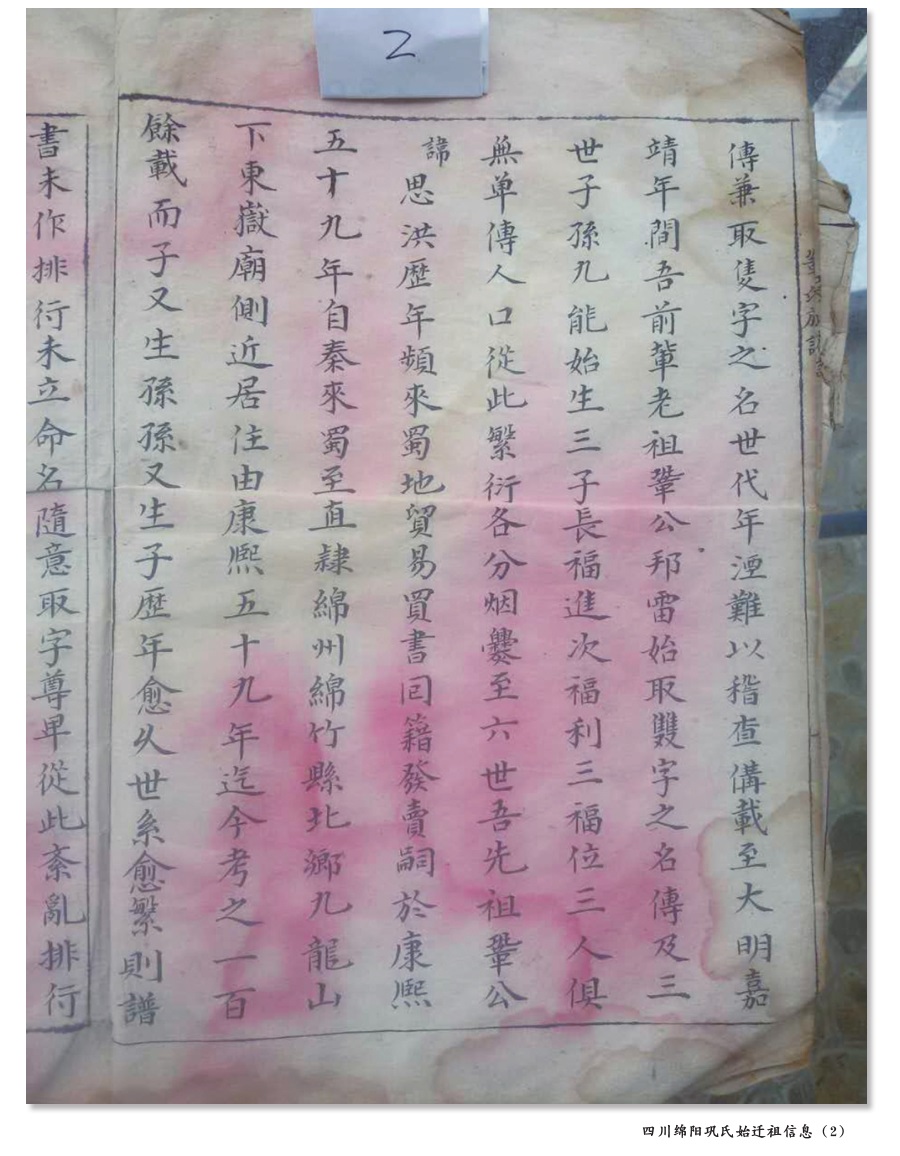 2
傳兼取隻字之名世代年湮難以稽查俻載至大明嘉
靖年間吾前輩老祖鞏公邦雷始取雙字之名傳及三
世子孫九能始生三子長福進次福利三福位三人俱
無单傳人口從此繁衍各分烟爨至六世吾先祖鞏公
諱思洪歷年頻來蜀地貿易買書囘籍發賣嗣於康熙
五十九年自秦來蜀至直隸綿州綿竹縣北鄉九龍山
下東嶽廟側近居住由康熙五十九年迄今考之一百
餘載而子又生孫孫又生子歷年愈乆世系愈繁則譜
書未作排衍未立命名隨意取字尊卑從此紊亂排衍
四川绵阳巩氏始迁祖信息（2）